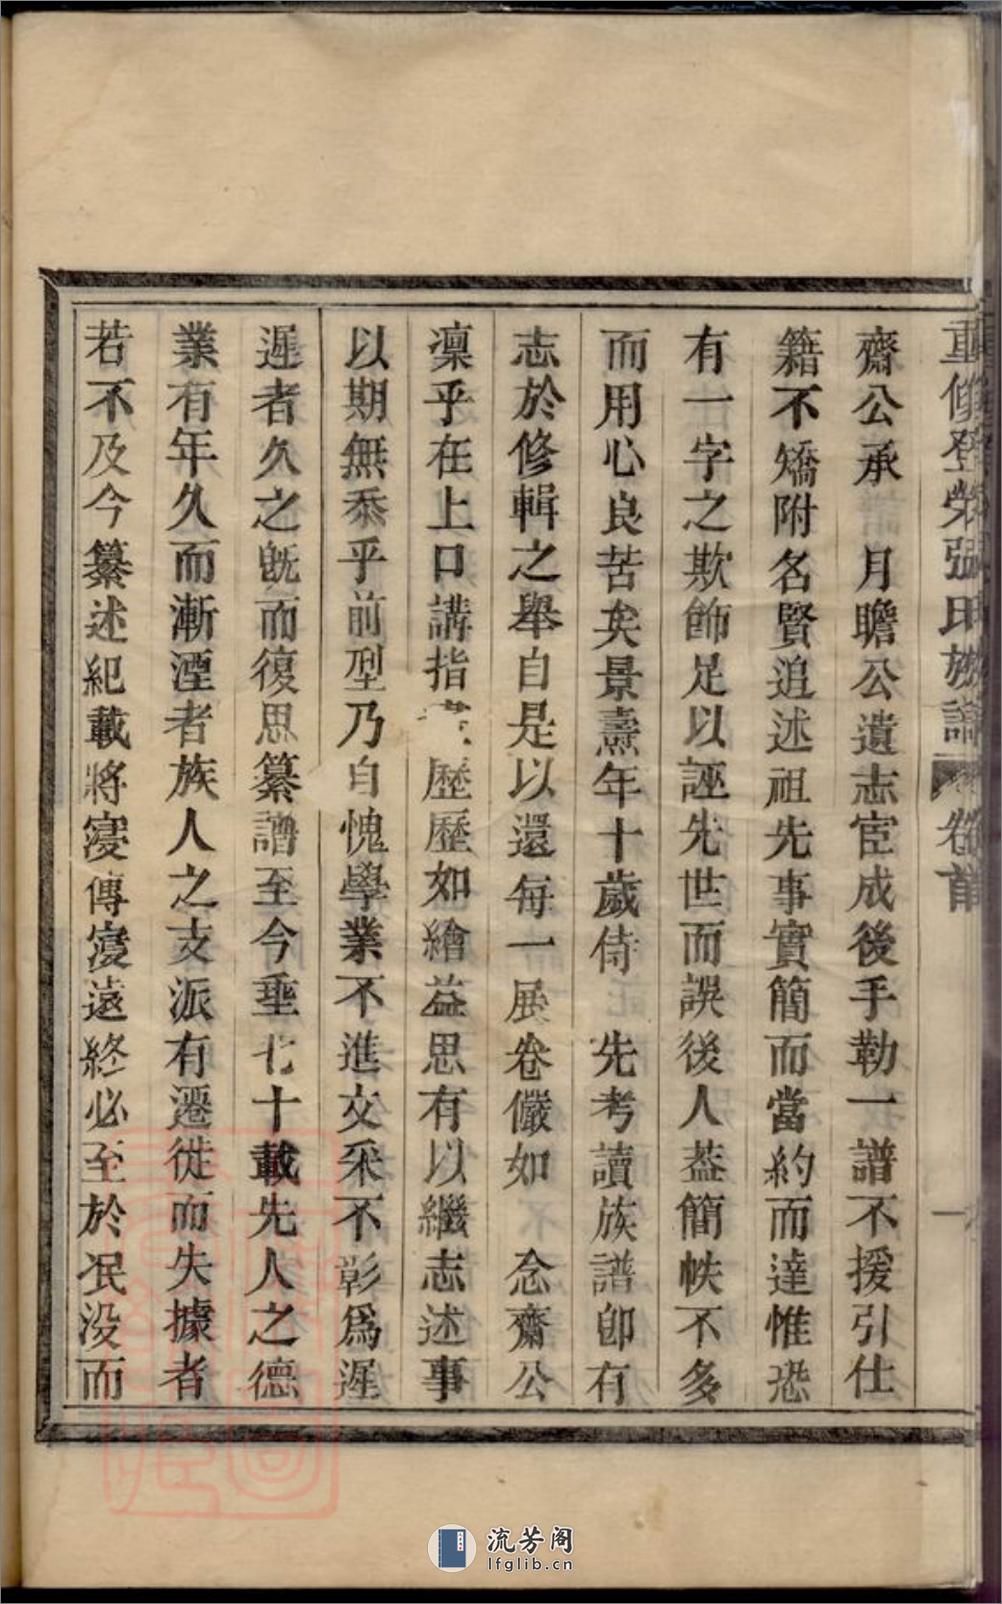 重修登榮張氏族譜 卷首 一
齋公承 月瞻公遺志宦成後手勒一譜不援引仕
籍不矯附名賢追述祖先事實簡而當約而達惟恐
有一字之欺飾足以誣先世而誤後人葢簡帙不多
而用心良苦矣景燾年十歲侍 先考讀族譜卽有
志於修輯之舉自是以還每一展卷儼如 念齋公
凜乎在上口講指 歷歷如繪益思有以繼志述事
以期無忝乎前型乃自愧學業不進文采不彰爲遲
遲者久之旣而復思纂譜至今垂七十載先人之德
業有年久而漸湮者族人之支派有遷徙而失據者
若不及今纂述紀載將寖傳寖遠終必至於泯没而
流芳阁
lfglib.cn